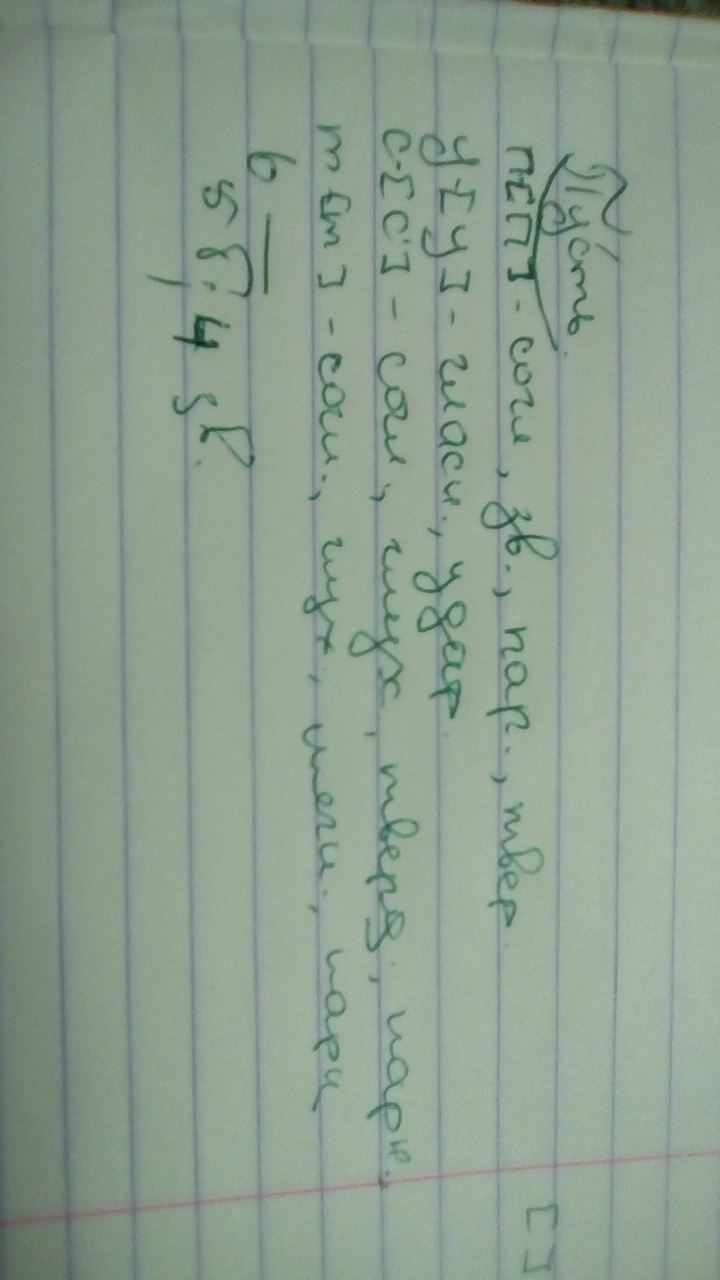 Пусть.
п-[П]-согл, зв., пар., твер.
у-[у]-гласн., удар.
с-[с']-согл., глух, тверд., парн.,
т-[т]-согл., глух., мягк., парн
ь —
5 б; 4 зв.
[]